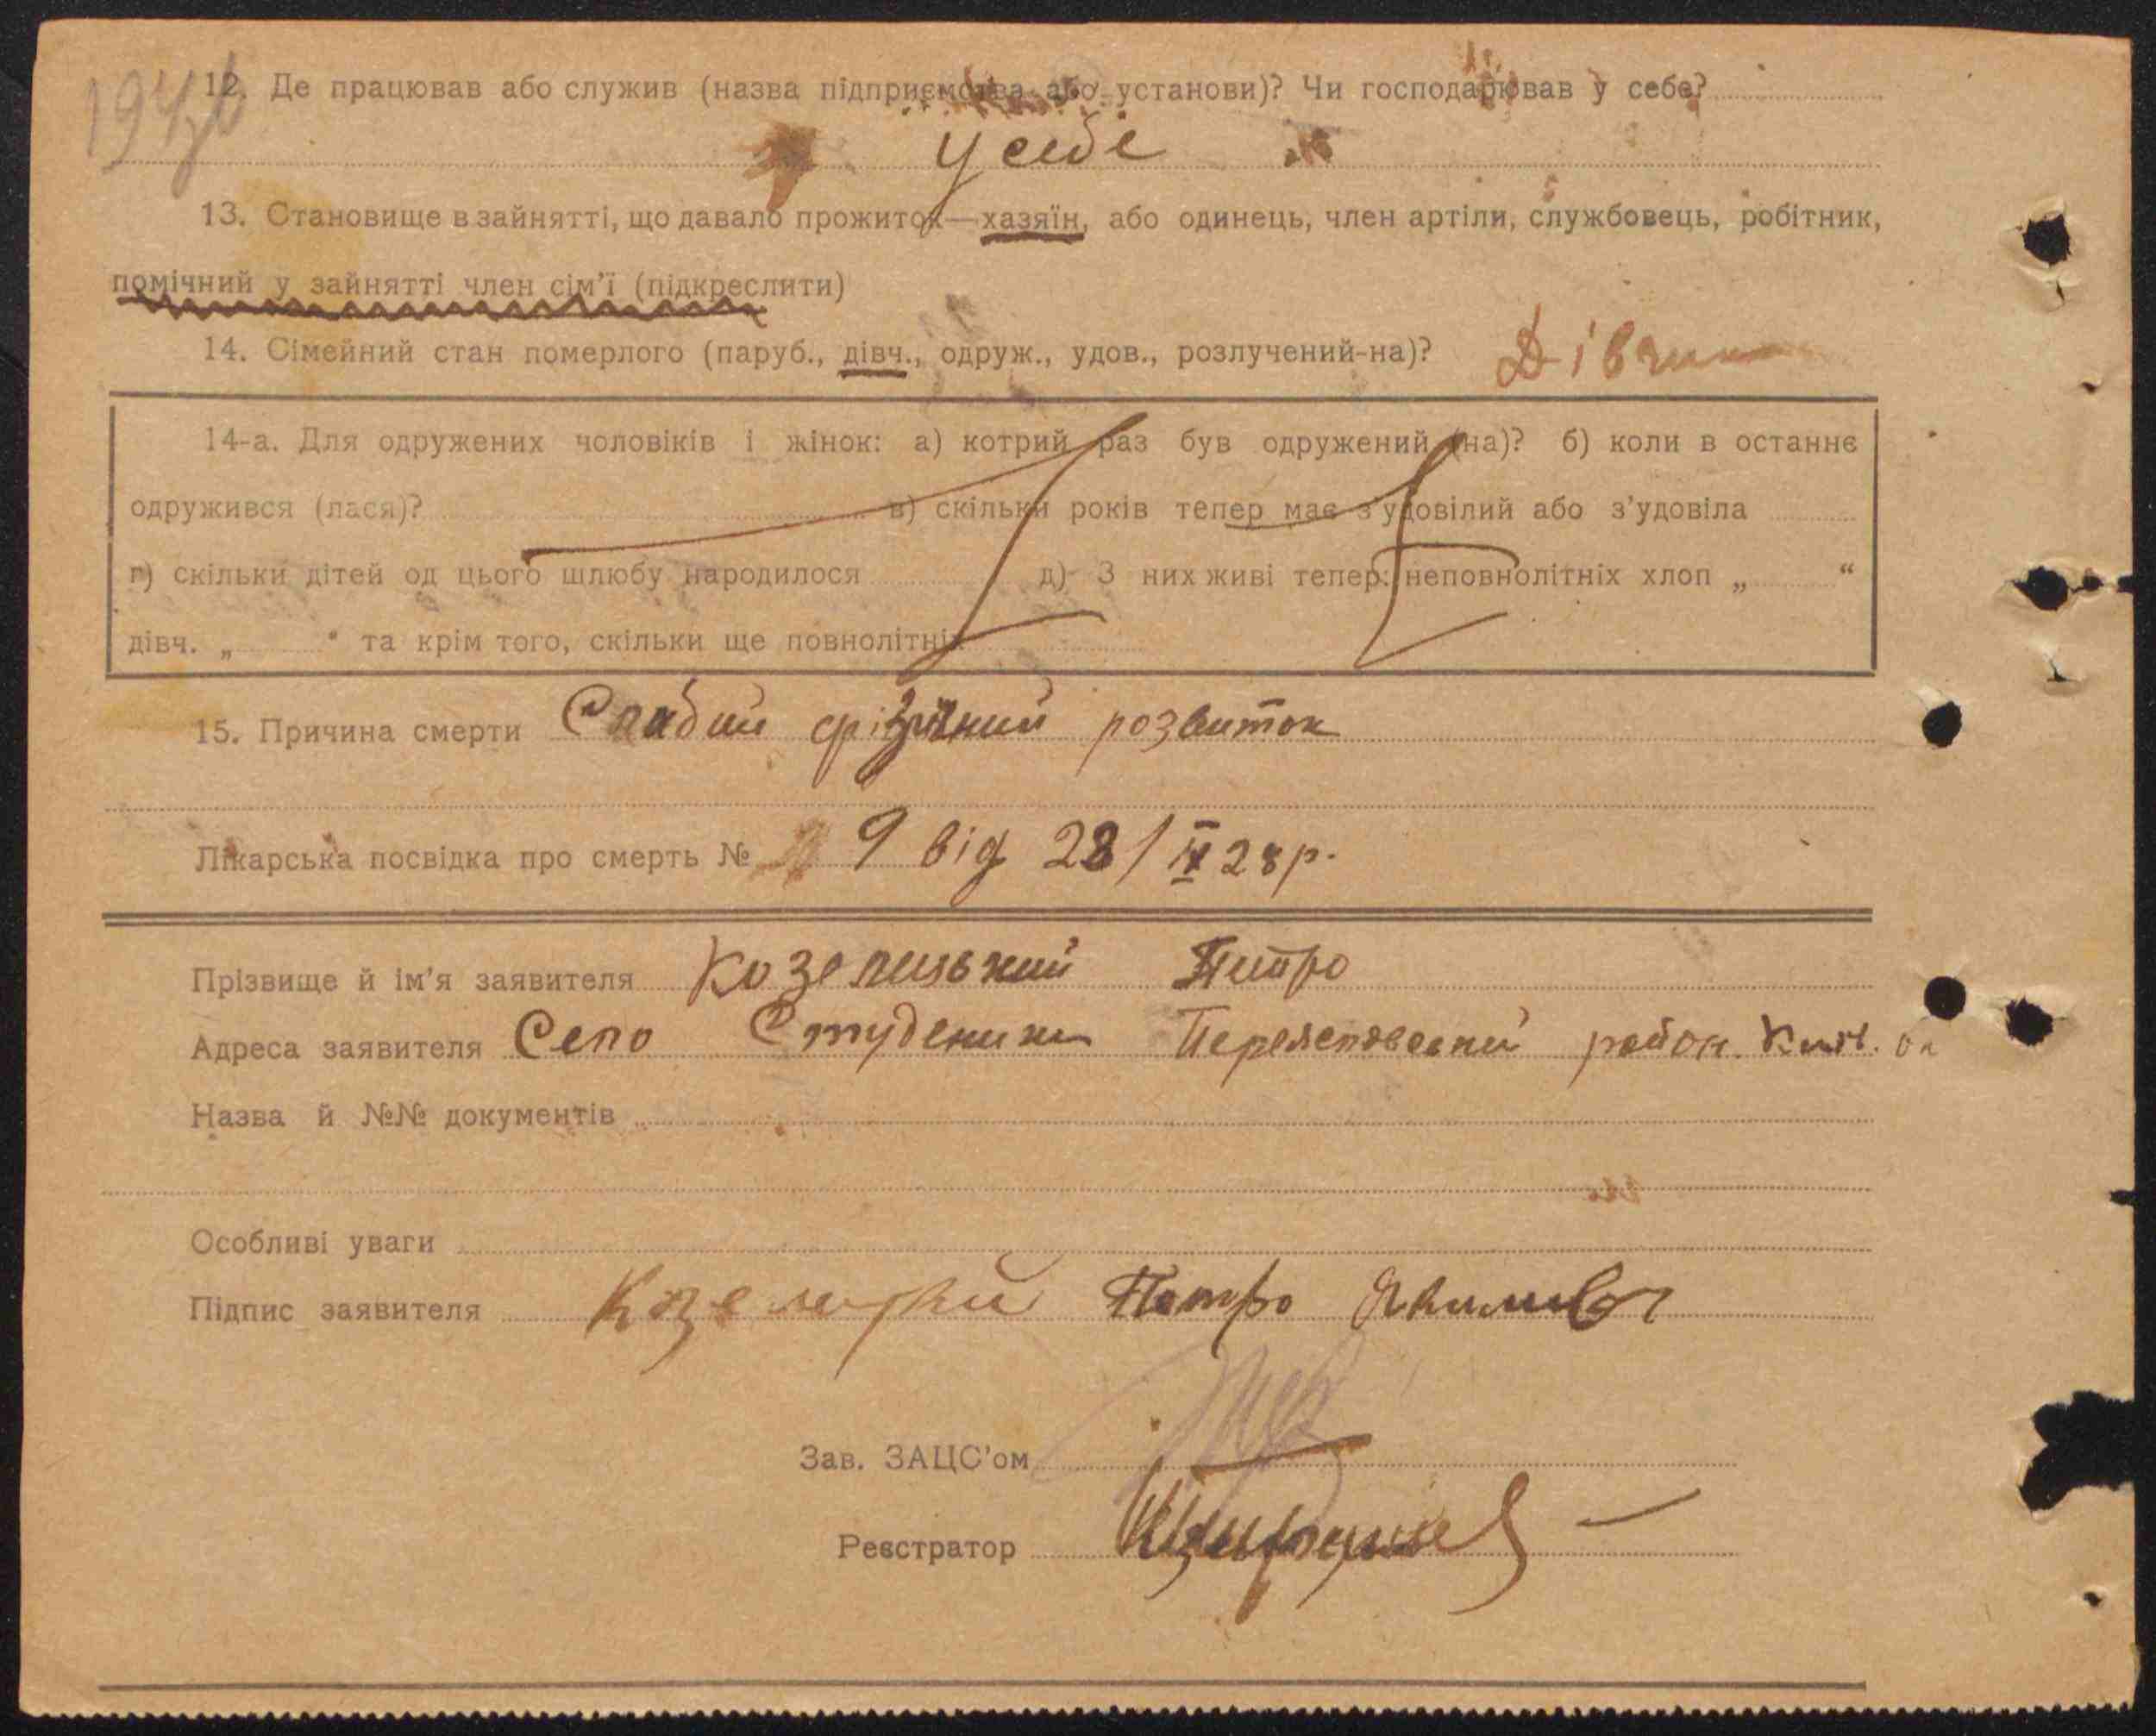 12. Де працював або служив (назва підприємства або установи)? Чи господарював у себе?
у себе
13. Становище в зайнятті, що давало прожиток—хазяїн, або одинець, член артіли, службовець, робітник,
помічний у зайнятті член сім'ї (підкреслити)
14. Сімейний стан померлого (паруб., дівч., одруж., удов., розлучений-на)? Дівчина
14-а. Для одружених чоловіків і жінок: а) котрий раз був одружений (на)? б) коли в останнє
одружився (лася)? в) скільки років тепер має з'удовілий або з'удовіла
г) скільки дітей од цього шлюбу народилося д) З них живі тепер: неповнолітніх хлоп „ “
дівч. „ “ та крім того, скільки ще повнолітніх
15. Причина смерти Слабий фізичний розвиток
Лікарська посвідка про смерть № 9 від 28/IV 28 р.
Прізвище й ім'я заявителя Козелецький Питро
Адреса заявителя Село Студеники Переяславський район. Київ. ок
Назва й №№ документів
Особливі уваги
Підпис заявителя Козелецкий Петро Якимович
Зав. ЗАЦС'ом
Реєстратор